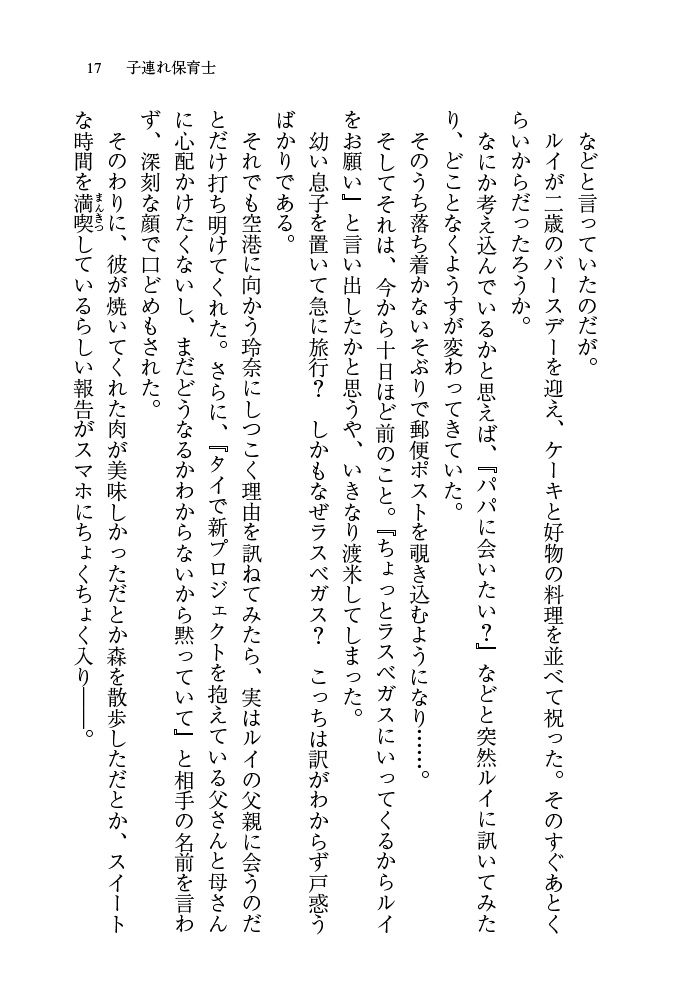 17 子連れ保育士
などと言っていたのだが。
ルイが二歳のバースデーを迎え、ケーキと好物の料理を並べて祝った。そのすぐあとく
らいからだったろうか。
なにか考え込んでいるかと思えば、『パパに会いたい？』などと突然ルイに訊いてみた
り、どことなくようすが変わってきていた。
そのうち落ち着かないそぶりで郵便ポストを覗き込むようになり……。
そしてそれは、今から十日ほど前のこと。『ちょっとラスベガスにいってくるからルイ
をお願い』と言い出したかと思うや、いきなり渡米してしまった。
幼い息子を置いて急に旅行？　しかもなぜラスベガス？　こっちは訳がわからず戸惑う
ばかりである。
それでも空港に向かう玲奈にしつこく理由を訊ねてみたら、実はルイの父親に会うのだ
とだけ打ち明けてくれた。さらに、『タイで新プロジェクトを抱えている父さんと母さん
に心配かけたくないし、まだどうなるかわからないから黙っていて』と相手の名前を言わ
ず、深刻な顔で口どめもされた。
そのわりに、彼が焼いてくれた肉が美味しかっただとか森を散歩しただとか、スイート
な時間を満喫しているらしい報告がスマホにちょくちょく入り――。
まんきつ